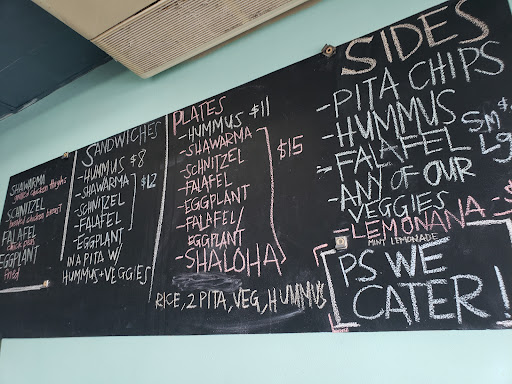 SHAWARMA
grilled chicken thighs
SCHNITZEL
breaded chicken breast
FALAFEL
chick peas
EGGPLANT
fried
SANDWICHES
-HUMMUS $8
-SHAWARMA
-SCHNITZEL
-FALAFEL
-EGGPLANT
$12
IN A PITA W/
HUMMUS+VEGGIES
PLATES
-HUMMUS $11
-SHAWARMA
-SCHNITZEL
-FALAFEL
-EGGPLANT
-FALAFEL/
EGGPLANT
-SHALOHA
$15
RICE, 2 PITA, VEG, HUMMUS
SIDES
-PITA CHIPS
-HUMMUS
-FALAFEL
-ANY OF OUR
VEGGIES
SM $
Lg
-LEMONANA -$
MINT LEMONADE
PS WE
CATER!